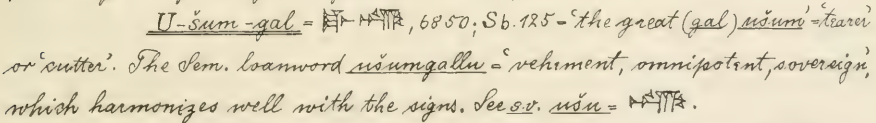 U-šum-gal = , 6850; Sb. 125 = ‘the great (gal) ušum’ = ‘tearer’
or ‘cutter’. The Sem. loanword ušumgallu = ‘vehement, omnipotent, sovereign’,
which harmonizes well with the signs. See s.v. ušu = .